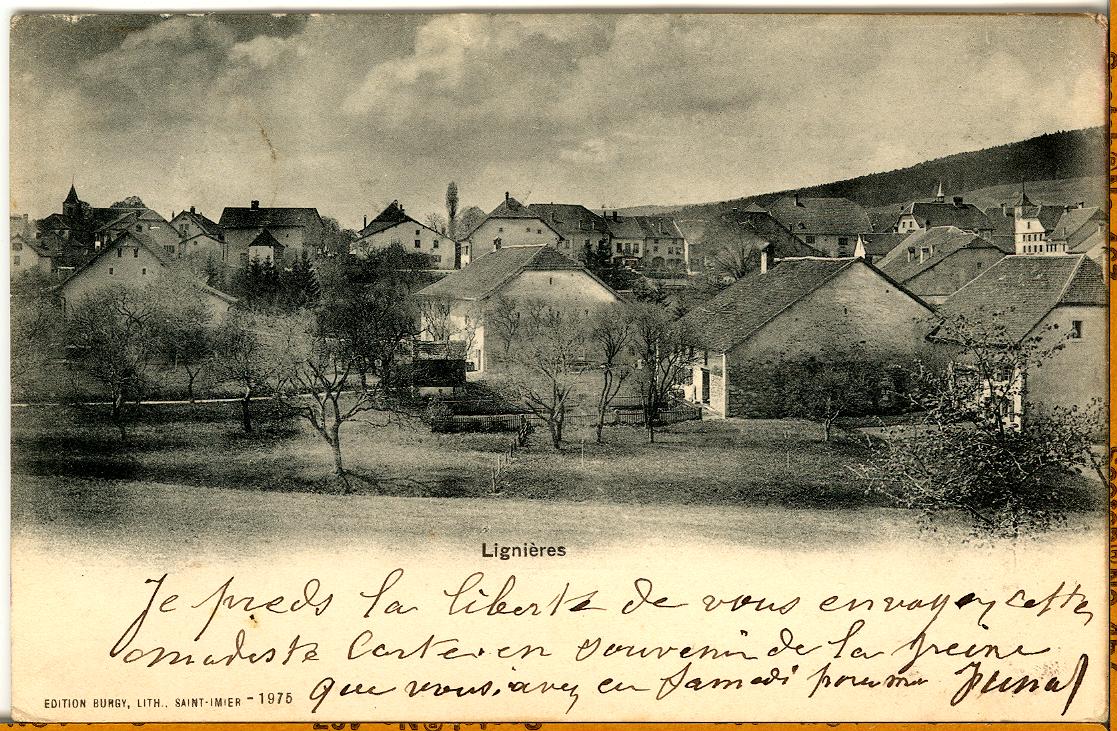 Lignières
Je preds la liberte de vous envoyez cette
modeste carte en souvenir de la peine
que vous avez eu samedi pour
EDITION BURGY, LITH., SAINT-IMIER - 1975